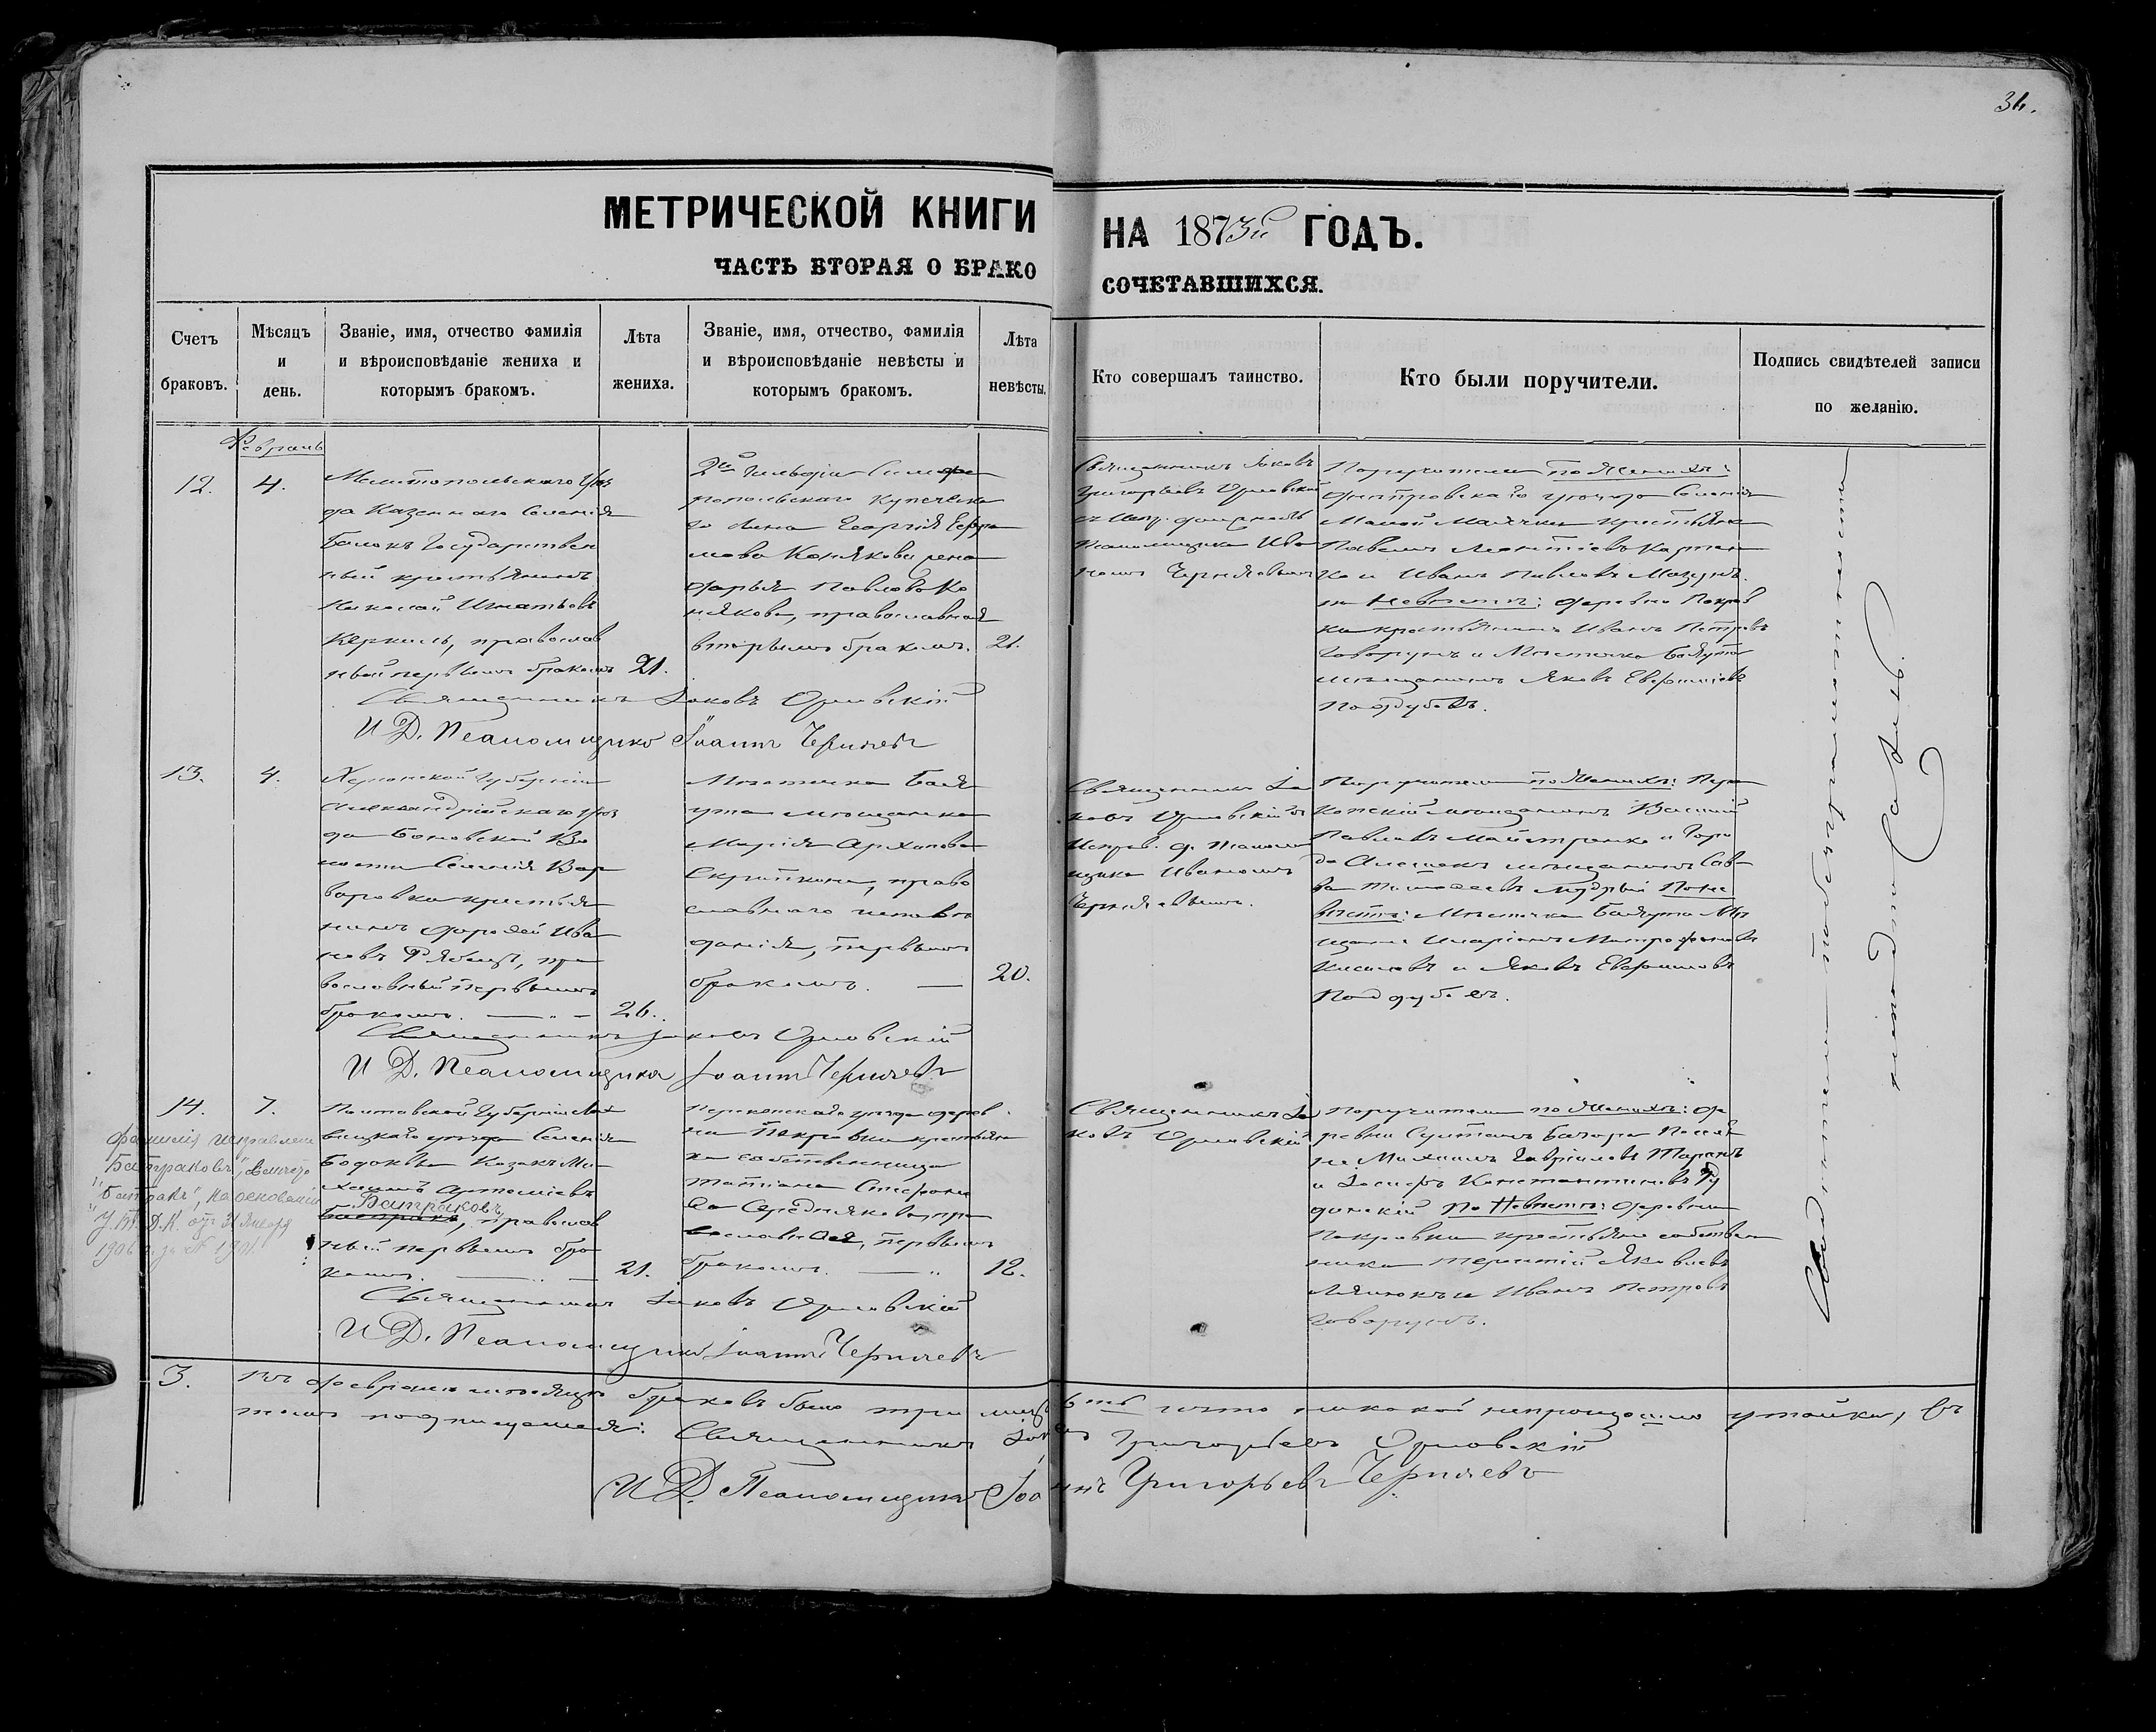 34.
МЕТРИЧЕСКОЙ КНИГИ НА 1873й ГОДЪ.
ЧАСТЬ ВТОРАЯ О БРАКО СОЧЕТАВШИХСЯ.
Счетъ браковъ.
Мѣсяцъ и день.
Званіе, имя, отчество фамилія
и вѣроисповѣданіе жениха и
которымъ бракомъ.
Лѣта жениха.
Званіе, имя, отчество, фамилія
и вѣроисповѣданіе невѣсты и
которымъ бракомъ.
Лѣта невѣсты.
Кто совершалъ таинство.
Кто были поручители.
Подпись свидѣтелей записи
по желанію.
Февраль
12.
4.
Мелитопольскаго Уѣз
да Казеннаго Селенія
Балокъ Государствен
ный крестьянинъ
Николай Игнатьевъ
православ
ный первымъ бракомъ
21.
2й гильдіи Симфе
ропольскаго купечска
го сына Георгія
Конякова жена
Дарья Павлова Ко
някова, православная
вторымъ бракомъ.
21.
Священникъ Іаковъ
Григорьевъ Орловскій
съ Испр. должность
Псаломщика Ива
номъ Чернявымъ
Поручители по Женихѣ:
Днѣпровскаго уѣзда Селенія
Малой Маячки крестьяне
Павелъ Леонтіевъ
и Иванъ Павловъ
по Невѣстѣ: деревни Покров
ки крестьянинъ Иванъ Петровъ
Говорунъ и Мѣстечка Баяута
мѣщанинъ Яковъ
Поддубевъ.
Священникъ Іаковъ Орловскій
И Д. Псаломщика Іоаннъ Черняевъ
13.
4.
Херсонской Губерніи
Александрійскаго уѣз
да Боковской Во
лости Селенія Вар
варовки крестья
нинъ Фаддей Ива
новъ Рябецъ, пра
вославный первымъ
бракомъ.
26.
Мѣстечка Баяу
ута мѣщанка
Марія Архипова
право
славнаго исповѣ
данія, первымъ
бракомъ.
20.
Священникъ Іа
ковъ Орловскій съ
Исправ. д. Псалом
щика Иваномъ
Чернявымъ.
Поручители по Женихѣ: Пере
копскій мѣщанинъ Василій
Павловъ Майстренко и Горо
да Алешекъ мѣщанинъ Сав
ва Мудрый По не
вѣстѣ: Мѣстечка Баяута Мѣ
щане Иларіонъ Митрофановъ
Киселевъ и Яковъ
Поддубевъ.
Священникъ Іаковъ Орловскій
И Д. Псаломщика Іоаннъ Черняевъ
14.
7.
Полтавской Губерніи Лох
вицкаго уѣзда Селенія
Бодаквы Казакъ Ми
хаилъ Артеміевъ
Батраковъ
Батракъ, православ
ный первымъ бра
комъ.
21.
Перекопскаго уѣзда дерев
ни Покровки крестьян
ка собственница
Татіана Стефано
ва Середнякова, пра
вославная, первымъ
бракомъ.
12.
Священникъ Іа
ковъ Орловскій
Поручители по Женихѣ: де
ревни Султанъ Бачора Поселя
не Михаилъ Гавріиловъ Таранъ
и Іосифъ Константиновъ
По Невѣстѣ: деревни
Покровки крестьяне собствен
ники Терентій Яковлевъ
и Иванъ Петровъ
Говорунъ.
Фамилія исправлена
"Батраковъ", вмѣсто
"Батракъ", на основаніи
У. Т. Д. К. отъ 31 Января
1906 г. за № 1901.
Священникъ Іаковъ Орловскій
И Д. Псаломщика Іоаннъ Черняевъ
Свидѣтели по безграмотности
неподписались.
3.
Въ февралѣ мѣсяцѣ браковъ было три никакой непроизошло утайки, въ
томъ подписуемся: Священникъ Іаковъ Григорьевъ Орловскій
И Д. Псаломщика Іоаннъ Григорьевъ Черняевъ